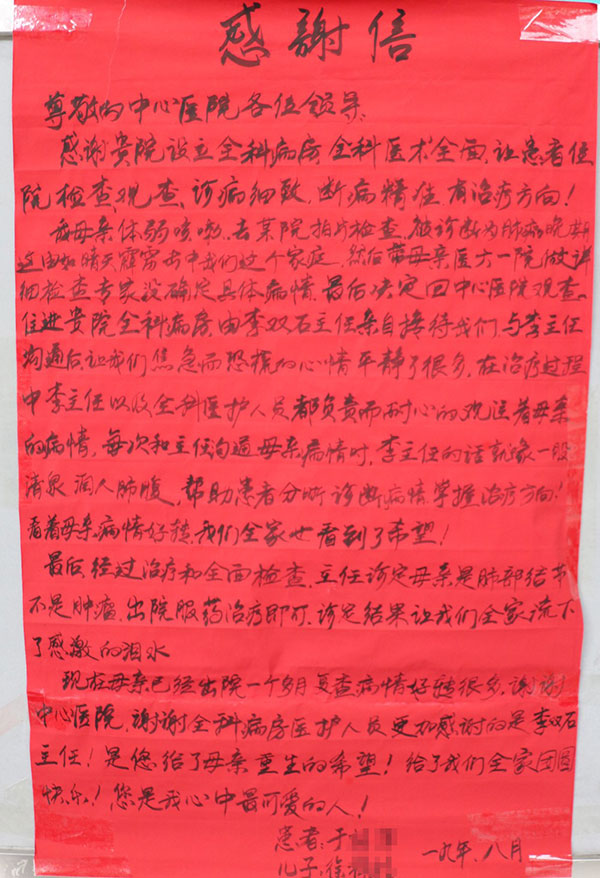 感謝信
尊敬的中心医院各位领导
感谢贵院设立全科病房全科医术全面,让患者住
院检查,观查,诊病细致,断病精准,有治疗方向!
我母亲体弱咳嗽,去某院拍片检查,被诊断为肺癌晚期
这由如晴天霹雳击中我们这个家庭,然后带母亲医大一院做详
细检查专家没确定具体病情,最后决定回中心医院观查,
住进贵院全科病房,由李双石主任亲自接待我们,与李主任
沟通后,让我们焦急而恐慌的心情平静了很多,在治疗过程
中李主任以及全科医护人员都负责而耐心的观注着母亲
的病情,每次和主任沟通母亲病情时,李主任的话就像一股
清泉润人肺腹,帮助患者分晰诊断病情,掌握治疗方向!
看着母亲病情好转,我们全家也看到了希望!
最后,经过治疗和全面检查,主任诊定母亲是肺部结节
不是肿瘤,出院服药治疗即可,诊定结果让我们全家流下
了感激的泪水
现在母亲已经出院一个多月,复查病情好转很多,谢谢
中心医院,谢谢全科病房医护人员更加感谢的是李双石
主任!是您给了母亲重生的希望!给了我们全家团圆
快乐!您是我心中最可爱的人!
患者:于
儿子:徐
一九年、八月